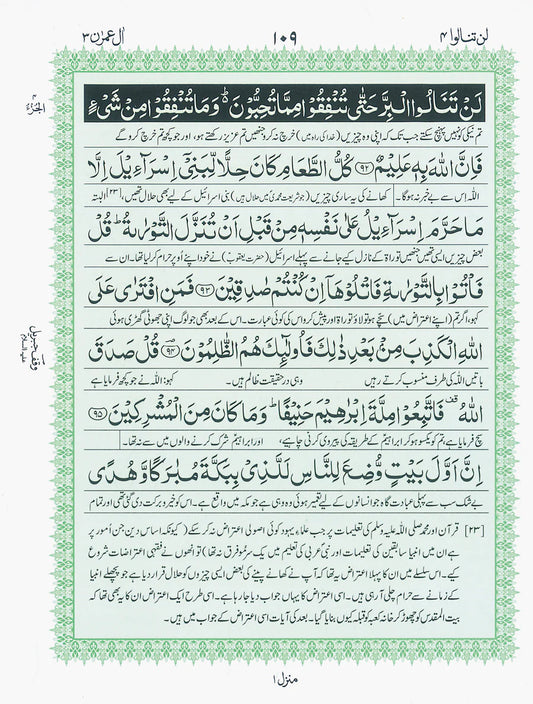 لن تنالوا ۴
۱۰۹
اٰل عمرٰن ۳
لَنْ تَنَالُوا الْبِرَّ حَتّٰى تُنْفِقُوْا مِمَّا تُحِبُّوْنَ ؕ وَمَا تُنْفِقُوْا مِنْ شَىْءٍ
تم نیکی کو نہیں پہنچ سکتے جب تک کہ اپنی وہ چیزیں (خدا کی راہ میں) خرچ نہ کرو جنھیں تم عزیز رکھتے ہو، اور جو کچھ تم خرچ کرو گے
فَاِنَّ اللّٰهَ بِهٖ عَلِيْمٌ ﴿۹۲﴾ كُلُّ الطَّعَامِ كَانَ حِلًّا لِّبَنِىْۤ اِسْرَآءِيْلَ اِلَّا
اللہ اس سے بے خبر نہ ہوگا۔ کھانے کی یہ ساری چیزیں (جو شریعت محمدیؐ میں حلال ہیں) بنی اسرائیل کے لیے بھی حلال تھیں، [۲۳] البتہ
مَا حَرَّمَ اِسْرَآءِيْلُ عَلٰى نَفْسِهٖ مِنْ قَبْلِ اَنْ تُنَزَّلَ التَّوْرٰٮةُ ؕ قُلْ
بعض چیزیں ایسی تھیں جنھیں توراۃ کے نازل کیے جانے سے پہلے اسرائیل (حضرت یعقوبؑ) نے خود اپنے اُوپر حرام کر لیا تھا۔ ان سے
فَاْتُوْا بِالتَّوْرٰٮةِ فَاتْلُوْهَاۤ اِنْ كُنْتُمْ صٰدِقِيْنَ ﴿۹۳﴾ فَمَنِ افْتَرٰى عَلَى
کہو، اگر تم (اپنے اعتراض میں) سچے ہو تو لاؤ توراۃ اور پیش کرو اس کی کوئی عبارت۔ اس کے بعد بھی جو لوگ اپنی جھوٹی گھڑی ہوئی
اللّٰهِ الْكَذِبَ مِنْۢ بَعْدِ ذٰلِكَ فَاُولٰٓئِكَ هُمُ الظّٰلِمُوْنَ ﴿۹۴﴾ قُلْ صَدَقَ
باتیں اللہ کی طرف منسوب کرتے رہیں وہی در حقیقت ظالم ہیں۔ کہو: اللہ نے جو کچھ فرمایا ہے
اللّٰهُ ۟ فَاتَّبِعُوْا مِلَّةَ اِبْرٰهِيْمَ حَنِيْفًا ؕ وَمَا كَانَ مِنَ الْمُشْرِكِيْنَ ﴿۹۵﴾
سچ فرمایا ہے، تم کو یکسو ہو کر ابراہیمؑ کے طریقہ کی پیروی کرنی چاہیے، اور ابراہیمؑ شرک کرنے والوں میں سے نہ تھا۔
اِنَّ اَوَّلَ بَيْتٍ وُّضِعَ لِلنَّاسِ لَلَّذِىْ بِبَكَّةَ مُبٰرَكًا وَّهُدًى
بے شک سب سے پہلی عبادت گاہ جو انسانوں کے لیے تعمیر ہوئی وہ وہی ہے جو مکہ میں واقع ہے۔ اس کو خیر و برکت دی گئی تھی اور تمام
[۲۳] قرآن اور محمد صلی اللہ علیہ وسلم کی تعلیمات پر جب علماء یہود کوئی اصولی اعتراض نہ کر سکے (کیونکہ اساس دین جن اُمور پر
ہے ان میں انبیا سابقین کی تعلیمات اور نبی عربی کی تعلیم میں یک سرِ مُو فرق نہ تھا) تو انھوں نے فقہی اعتراضات شروع
کیے۔ اس سلسلے میں ان کا پہلا اعتراض یہ تھا کہ آپ نے کھانے پینے کی بعض ایسی چیزوں کو حلال قرار دیا ہے جو پچھلے انبیا
کے زمانے سے حرام چلی آ رہی ہیں۔ اسی اعتراض کا یہاں جواب دیا جا رہا ہے۔ اسی طرح ایک اعتراض ان کا یہ بھی تھا کہ
بیت المقدس کو چھوڑ کر خانہ کعبہ کو قبلہ کیوں بنایا گیا۔ بعد کی آیات اسی اعتراض کے جواب میں ہیں۔
الجزء ۴
وقف جبریل علیہ السلام
منزل ۱